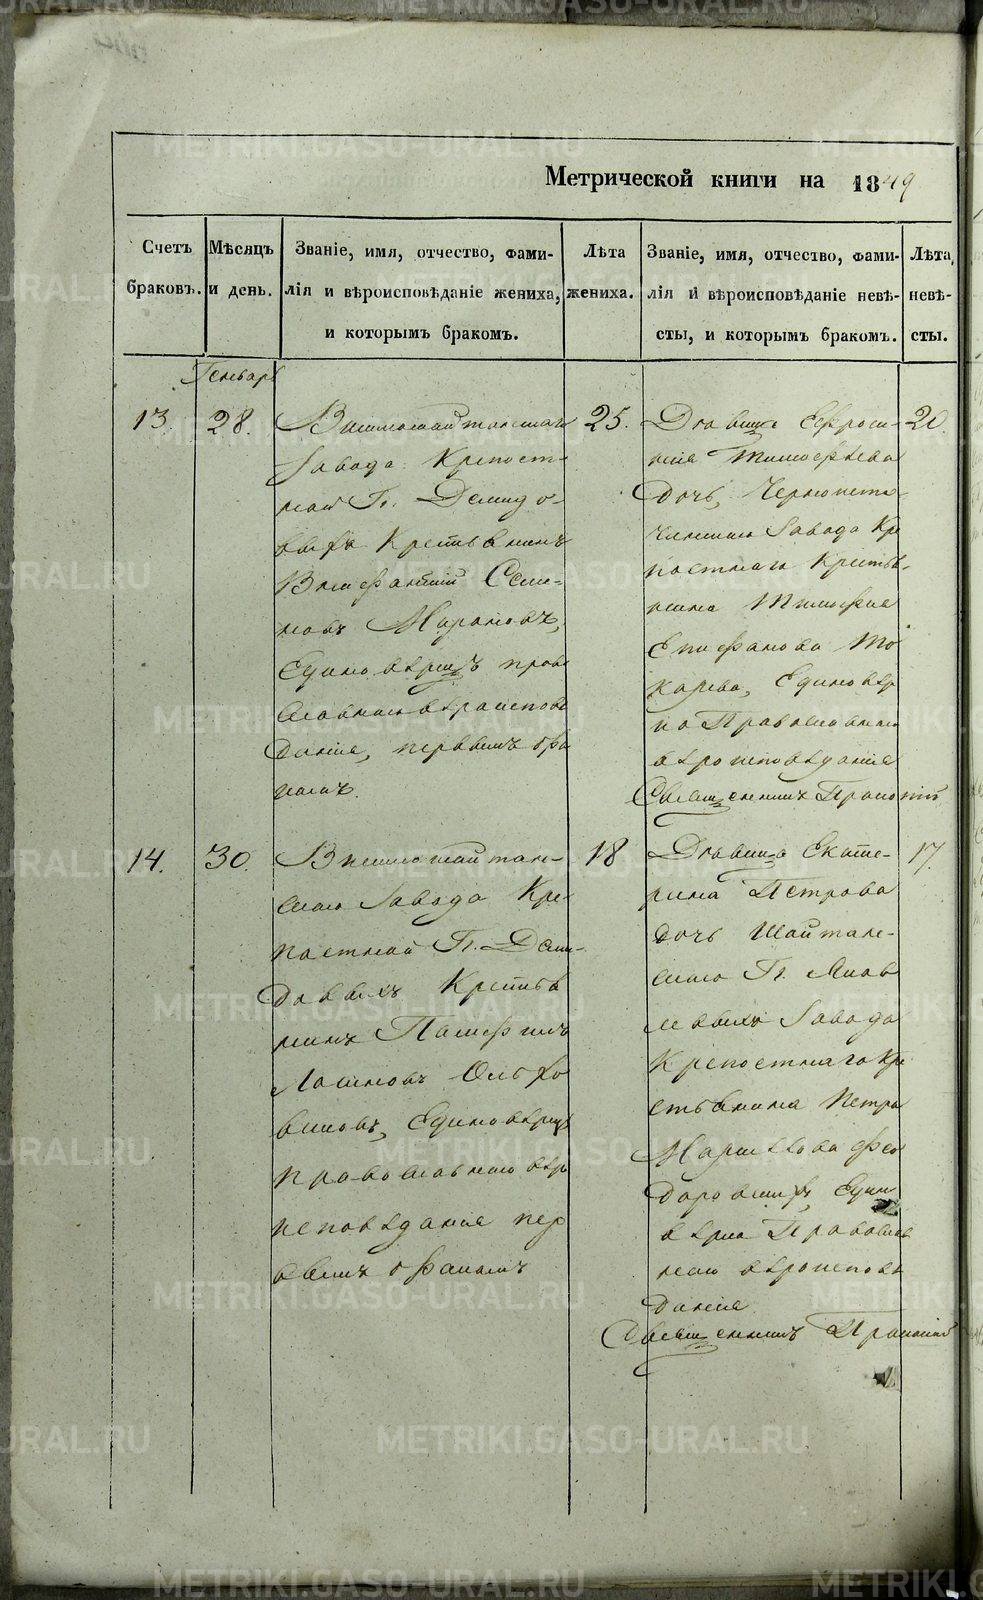 Метрической книги на 1849
Счетъ браковъ.
Мѣсяцъ и день.
Званіе, имя, отчество, фами-
лія и вѣроисповѣданіе жениха,
и которымъ бракомъ.
Лѣта жениха.
Званіе, имя, отчество, фами-
лія и вѣроисповѣданіе невѣ-
сты, и которымъ бракомъ.
Лѣта невѣ-
сты.
Генварь
13.
28.
Висимошайтанскаго
Завода Крепост-
ной Гг. Демидо-
выхъ Крестьянинъ
Семе-
новъ
Единовѣрецъ право
славнаго вѣроиспове
данія, первымъ бра
комъ.
25.
Дѣвица Ефроси-
нія Тимофѣева
Дочь, Черноисто-
чинскаго Завода Кре
постнаго Крестья-
нина Тимофея
Епифанова То
карева, Единовѣр
ка Православнаго
вѣроисповѣданія
Священникъ
20.
14.
30.
Висимошайтан-
скаго Завода Кре-
постной Гг. Деми-
довыхъ Крестья
нинъ Памфилъ
Логиновъ Ольхо
виковъ, Единовѣрецъ
православнаго вѣро
исповѣданія пер
вымъ бракомъ
18
Дѣвица Екате-
рина Петрова
дочь Шайтан-
скаго Гг. Яков
левыхъ Завода
Крепостнаго Кре
стьянина Петра
Федоровскихъ, Едино
вѣрка Православ
наго вѣроисповѣ
данія
Священникъ
17.
METRIKI.GASO-URAL.RU